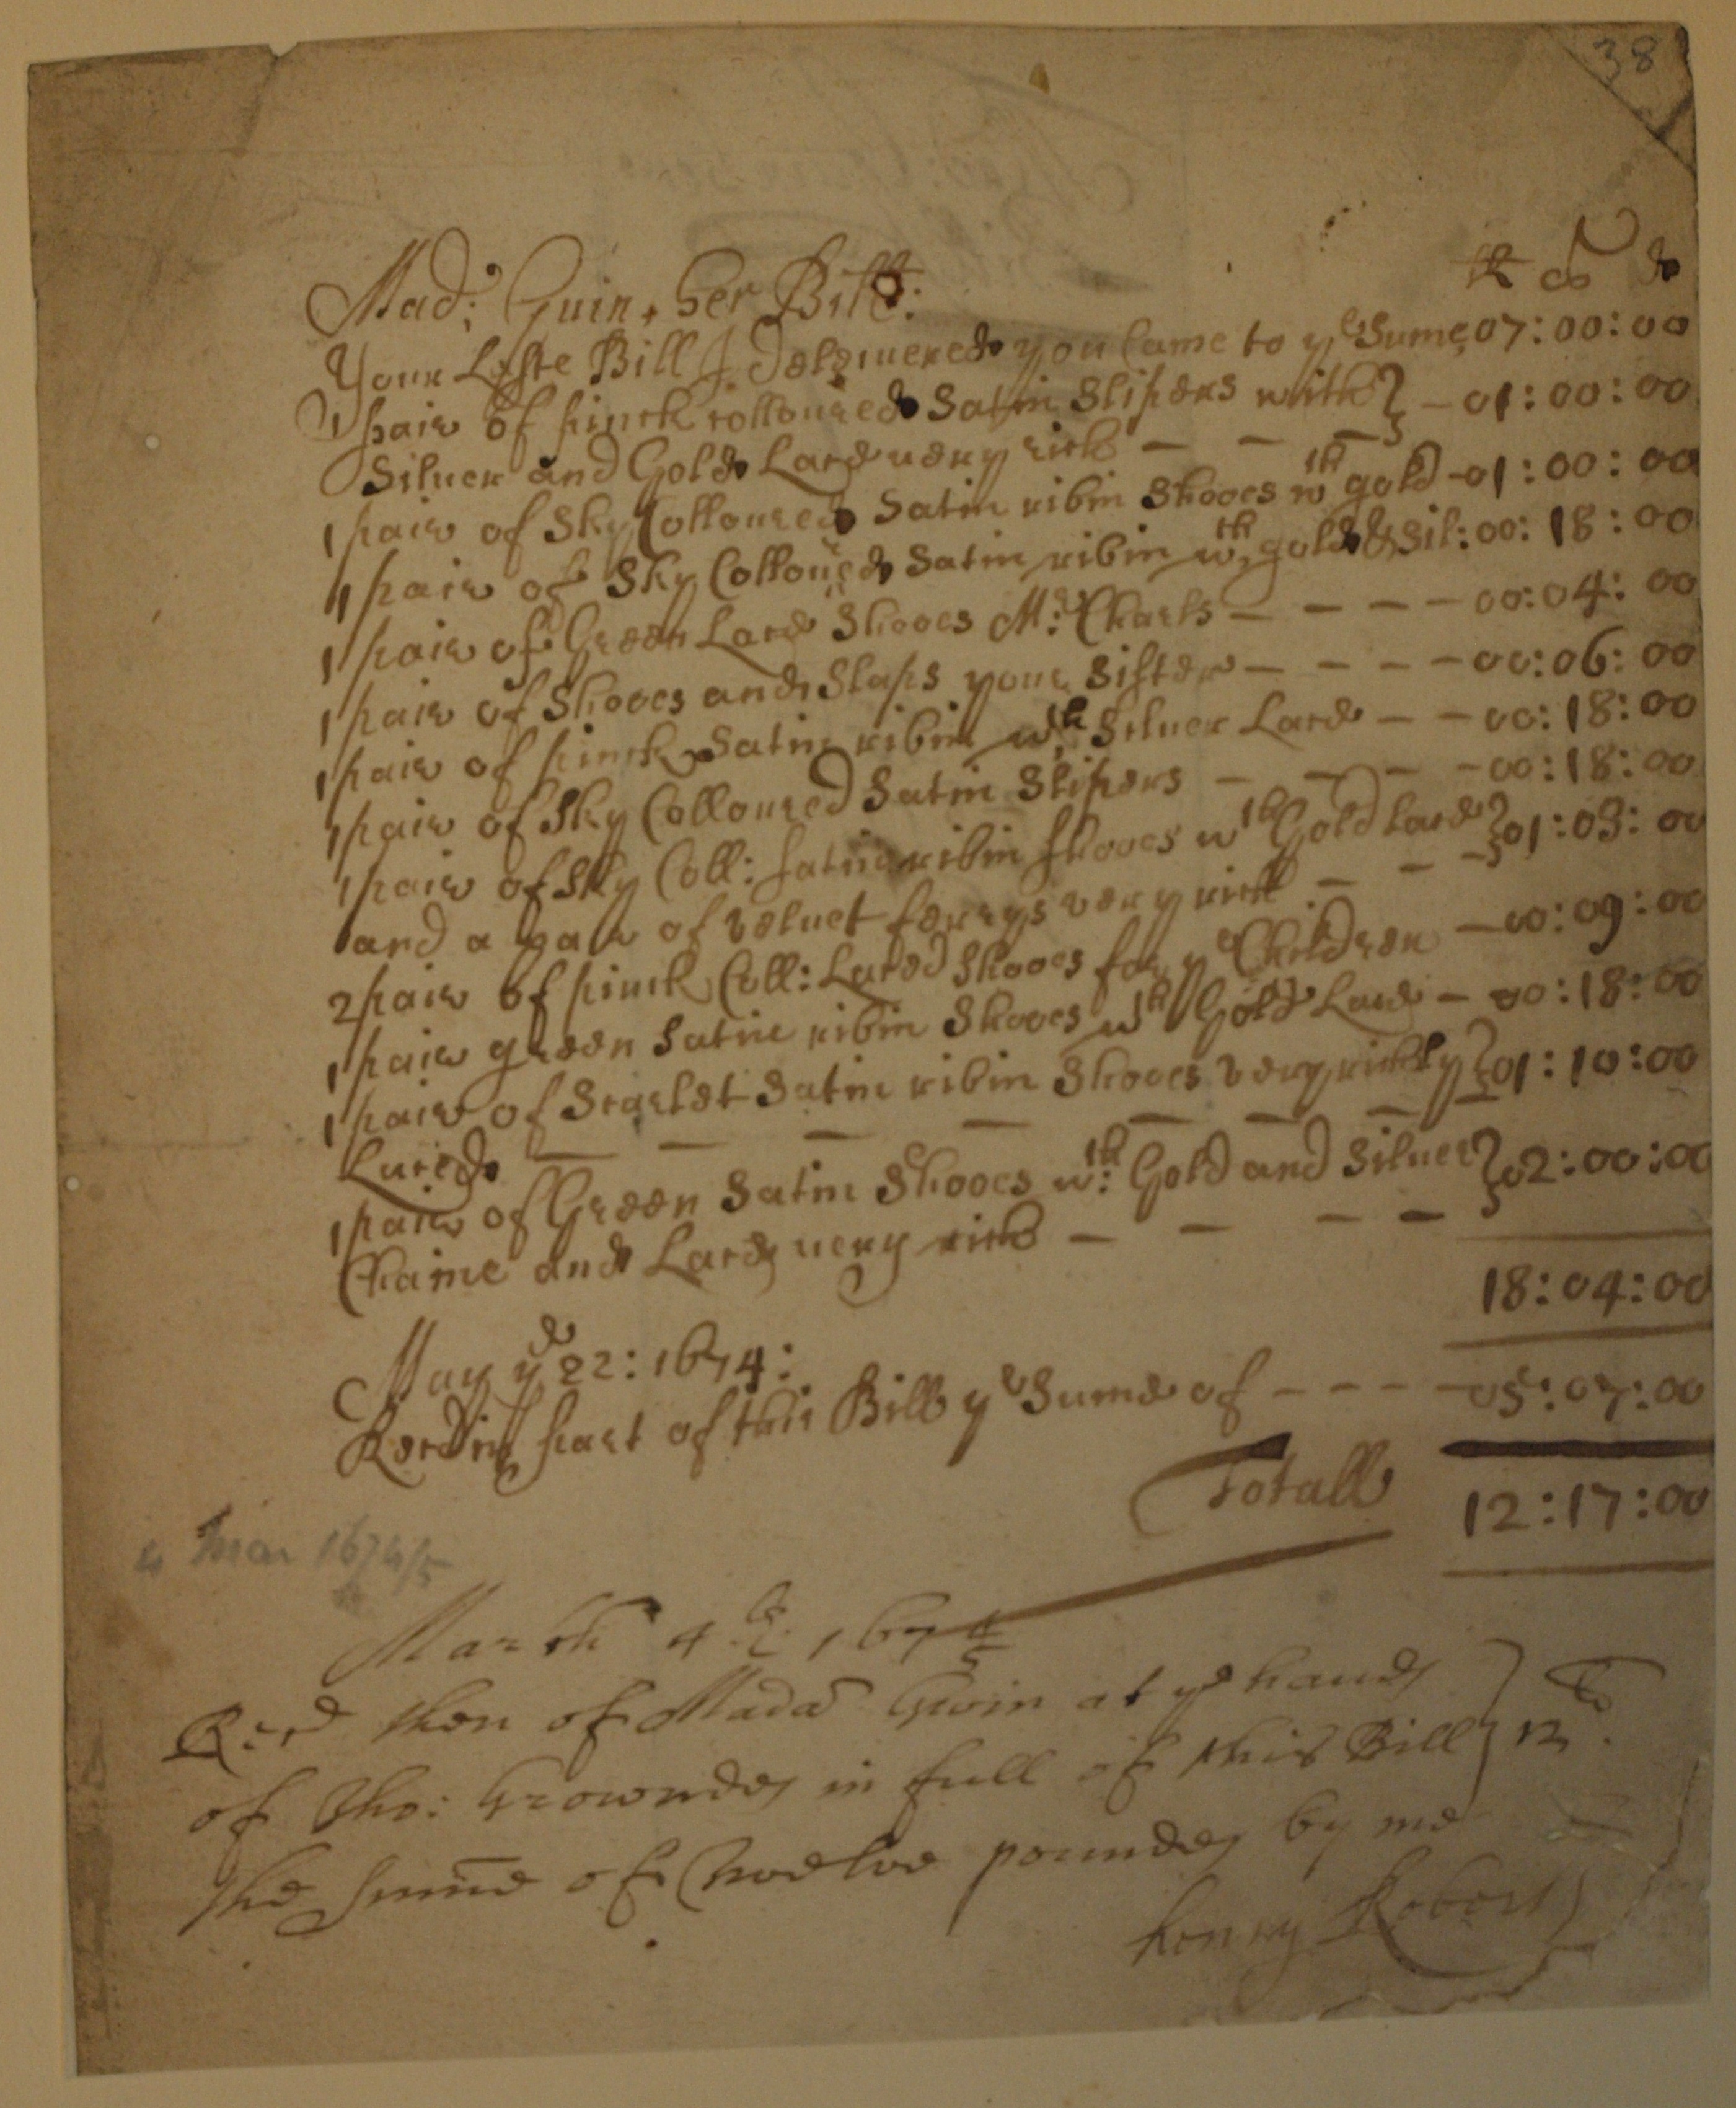 38
Mad: Guin, her Bill:
ll s d
Your Laste Bill I deleuered you Came to ye Sume 07:00:00
1 pair of pinck colloured Satin Slipers with } – 01:00:00
Siluer and Gold Lace uery rich – – –
1 pair of Sky Colloured Satin ribin Shooes wth gold – 01:00:00
1 pair of Sky Colloured Satin ribin wth gold & Sil: 00:18:00
1 pair of Green Laced Shooes Mr: Charls – – – – 00:04:00
1 pair of Shooes and Slaps your Sister – – – – 00:06:00
1 pair of pinck Satin ribin wth Siluer Lace – – 00:18:00
1 pair of Sky Colloured Satin Slipers – – – – 00:18:00
1 pair of Sky Coll: satin ribin shooes wth Gold Lace } 01:03:00
and a pair of veluet very rich – – –
2 pair of pinck Coll: Laced Shooes for ye Children – 00:09:00
1 pair green Satin ribin Shooes wth Gold Lace – 00:18:00
1 pair of Scarlet Satin ribin Shooes very richly } 01:10:00
Laced – – – – – – –
1 pair of Green Satin Shooes wth: Gold and Siluer } 02:00:00
Chaine and Lace uery rich – – – –
18:04:00
May ye 22: 1674:
Recd in part of this Bill ye Sume of – – – – 05:07:00
Totall 12:17:00
4 Mar 1674/5
March 4th 167 4/5
Recd then of Mada Gwin at ye hands
of Tho: Growndes in full of this Bill } 12
the sume of Twelve poundes by me
Henry Roberts